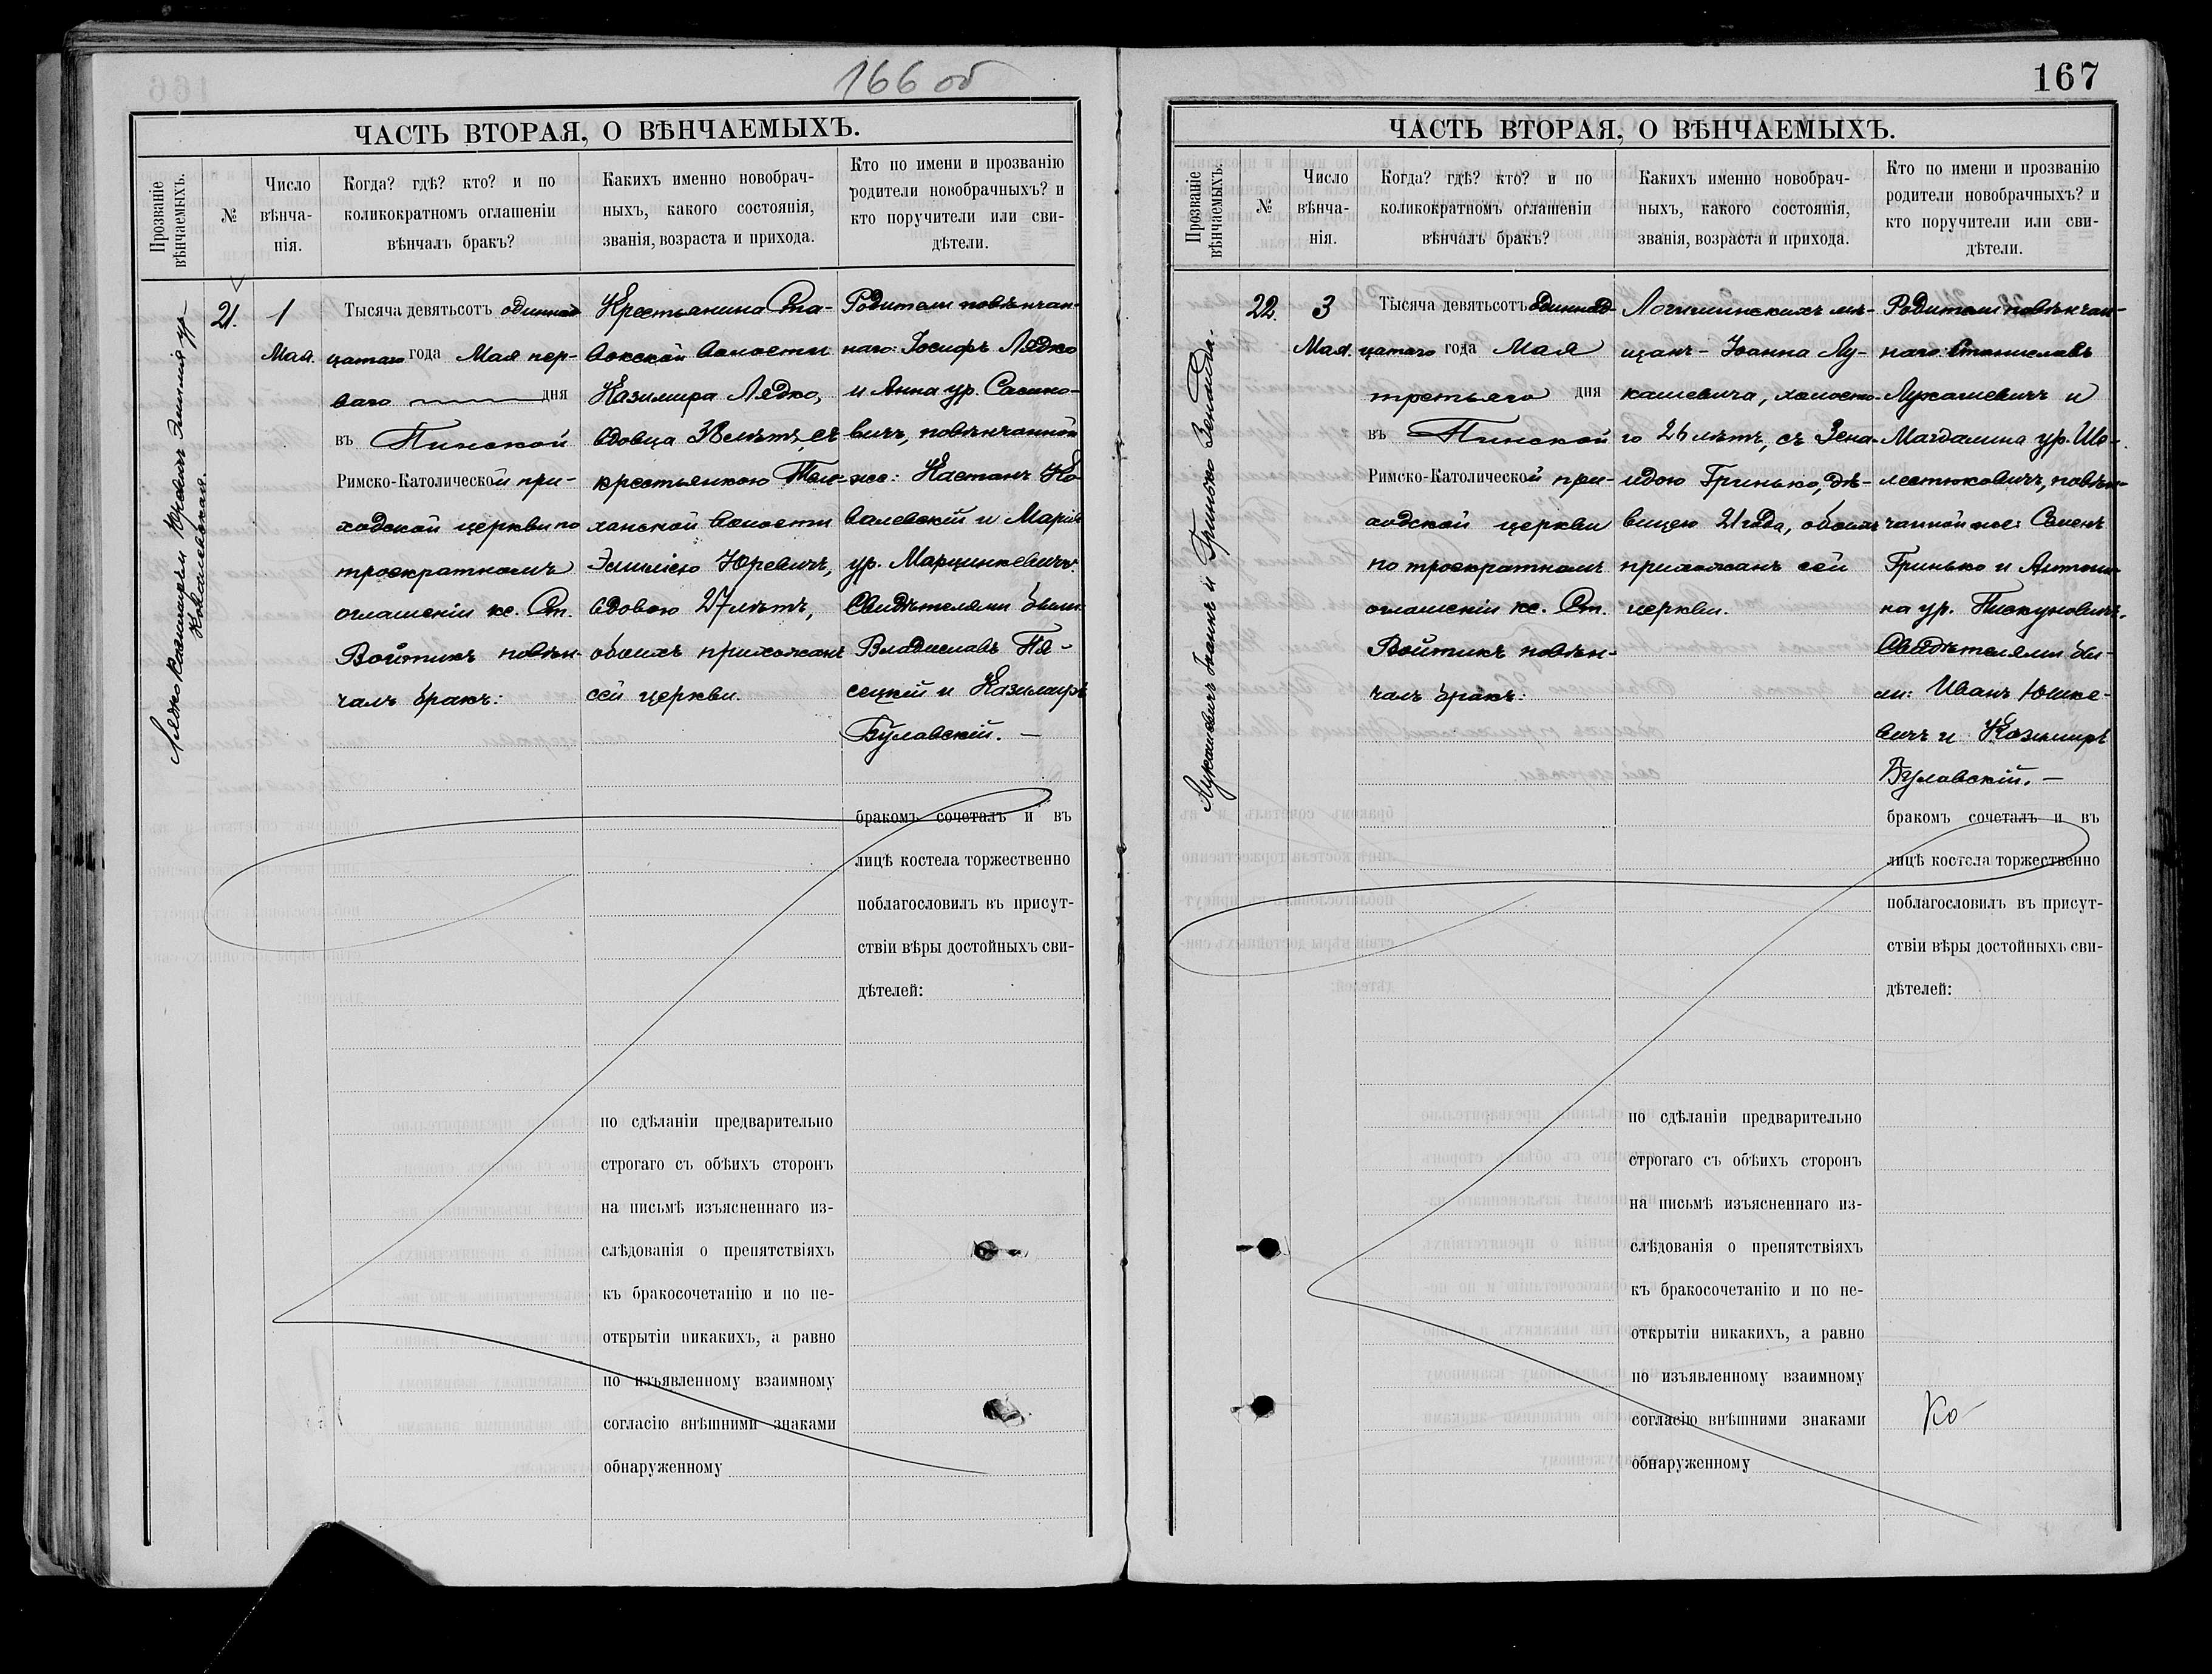 166 об
ЧАСТЬ ВТОРАЯ, О ВѢНЧАЕМЫХЪ.
Прозваніе
вѣнчаемыхъ.
№
Число
вѣнча-
нія.
Когда? гдѣ? кто? и по
коликократномъ оглашеніи
вѣнчалъ бракъ?
Какихъ именно новобрач-
ныхъ, какого состоянія,
званія, возраста и прихода.
Кто по имени и прозванію
родители новобрачныхъ? и
кто поручители или сви-
дѣтели.
Ледко Казиміръ и Юревичъ Эмилія ур.
Ковалевская.
21.
1
Мая.
Тысяча девятьсотъ одиннад-
цатаго года Мая пер-
ваго дня
въ Пинской
Римско-Католической при-
ходской церкви по
троекратномъ
оглашеніи кс. Ст.
Войтикъ повѣн-
чалъ бракъ:
Крестьянина Ста-
вокской волости
Казимира Ледко,
вдовца 38 лѣтъ, съ
крестьянкою Теле-
ханской волости
Эмиліею Юревичъ,
вдовою 27 лѣтъ,
обоихъ прихожанъ
сей церкви.
Родители повѣнчан-
наго: Іосифъ Ледко
и Анна ур. Сасино-
вичъ, повѣнчанной
же: Каетанъ Ко-
валевскій и Марія
ур. Марцинкевичъ.
Свидѣтелями были:
Владиславъ Пя-
сецкій и Казиміръ
Булавскій. —
бракомъ сочеталъ и въ
лицѣ костела торжественно
поблагословилъ въ присут-
ствіи вѣры достойныхъ сви-
дѣтелей:
по сдѣланіи предварительно
строгаго съ обѣихъ сторонъ
на письмѣ изъясненнаго из-
слѣдованія о препятствіяхъ
къ бракосочетанію и по не-
открытіи никакихъ, а равно
по изъявленному взаимному
согласію внѣшними знаками
обнаруженному
167
ЧАСТЬ ВТОРАЯ, О ВѢНЧАЕМЫХЪ.
Прозваніе
вѣнчаемыхъ.
№
Число
вѣнча-
нія.
Когда? гдѣ? кто? и по
коликократномъ оглашеніи
вѣнчалъ бракъ?
Какихъ именно новобрач-
ныхъ, какого состоянія,
званія, возраста и прихода.
Кто по имени и прозванію
родители новобрачныхъ? и
кто поручители или сви-
дѣтели.
Лукашевичъ Іоаннъ и Гринько Зенаида.
22.
3
Мая.
Тысяча девятьсотъ одиннад-
цатаго года Мая
третьего дня
въ Пинской
Римско-Католической при-
ходской церкви
по троекратномъ
оглашеніи кс. Ст.
Войтикъ повѣн-
чалъ бракъ:
Логишинскихъ мѣ-
щанъ - Іоанна Лу-
кашевича, холосто-
го 26 лѣтъ, съ Зена-
идою Гринько, дѣ-
вицею 21 года, обоихъ
прихожанъ сей
церкви.
Родители повѣнчан-
наго: Станиславъ
Лукашевичъ и
Магдалина ур. Ше-
лестюковичъ, повѣн-
чанной же: Семенъ
Гринько и Антони-
на ур. Пискуновичъ.
Свидѣтелями бы-
ли: Иванъ Юшке-
вичъ и Казимиръ
Булавскій. —
бракомъ сочеталъ и въ
лицѣ костела торжественно
поблагословилъ въ присут-
ствіи вѣры достойныхъ сви-
дѣтелей:
по сдѣланіи предварительно
строгаго съ обѣихъ сторонъ
на письмѣ изъясненнаго из-
слѣдованія о препятствіяхъ
къ бракосочетанію и по не-
открытіи никакихъ, а равно
по изъявленному взаимному
согласію внѣшними знаками
обнаруженному
Ко-